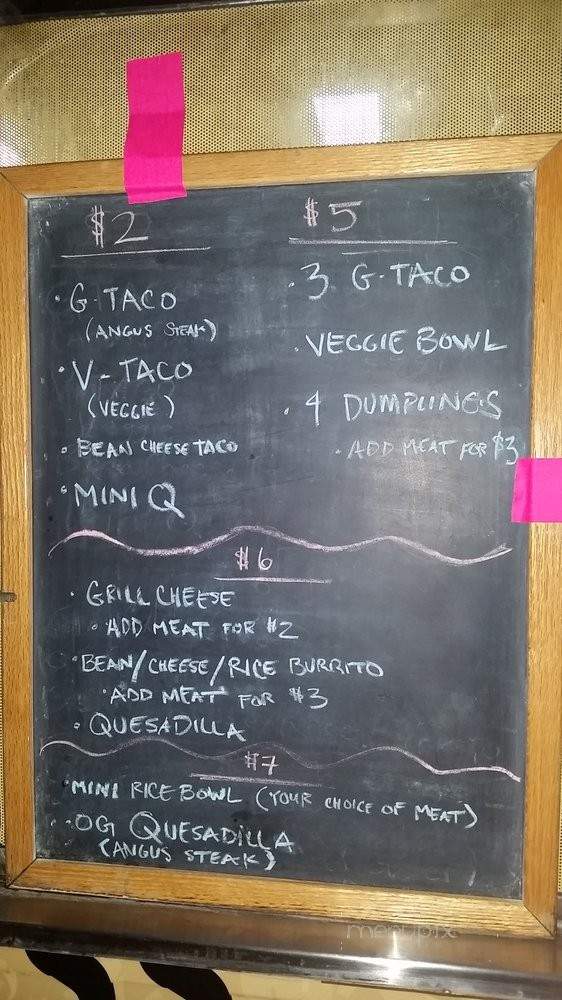 $2
· G-TACO
(ANGUS STEAK)
· V-TACO
(VEGGIE)
· BEAN CHEESE TACO
· MINI Q
$5
· 3 G-TACO
· VEGGIE BOWL
· 4 DUMPLINGS
· ADD MEAT FOR $3
$6
· GRILL CHEESE
· ADD MEAT FOR $2
· BEAN/CHEESE/RICE BURRITO
· ADD MEAT FOR $3
· QUESADILLA
$7
· MINI RICE BOWL (YOUR CHOICE OF MEAT)
· OG QUESADILLA
(ANGUS STEAK)
menupix